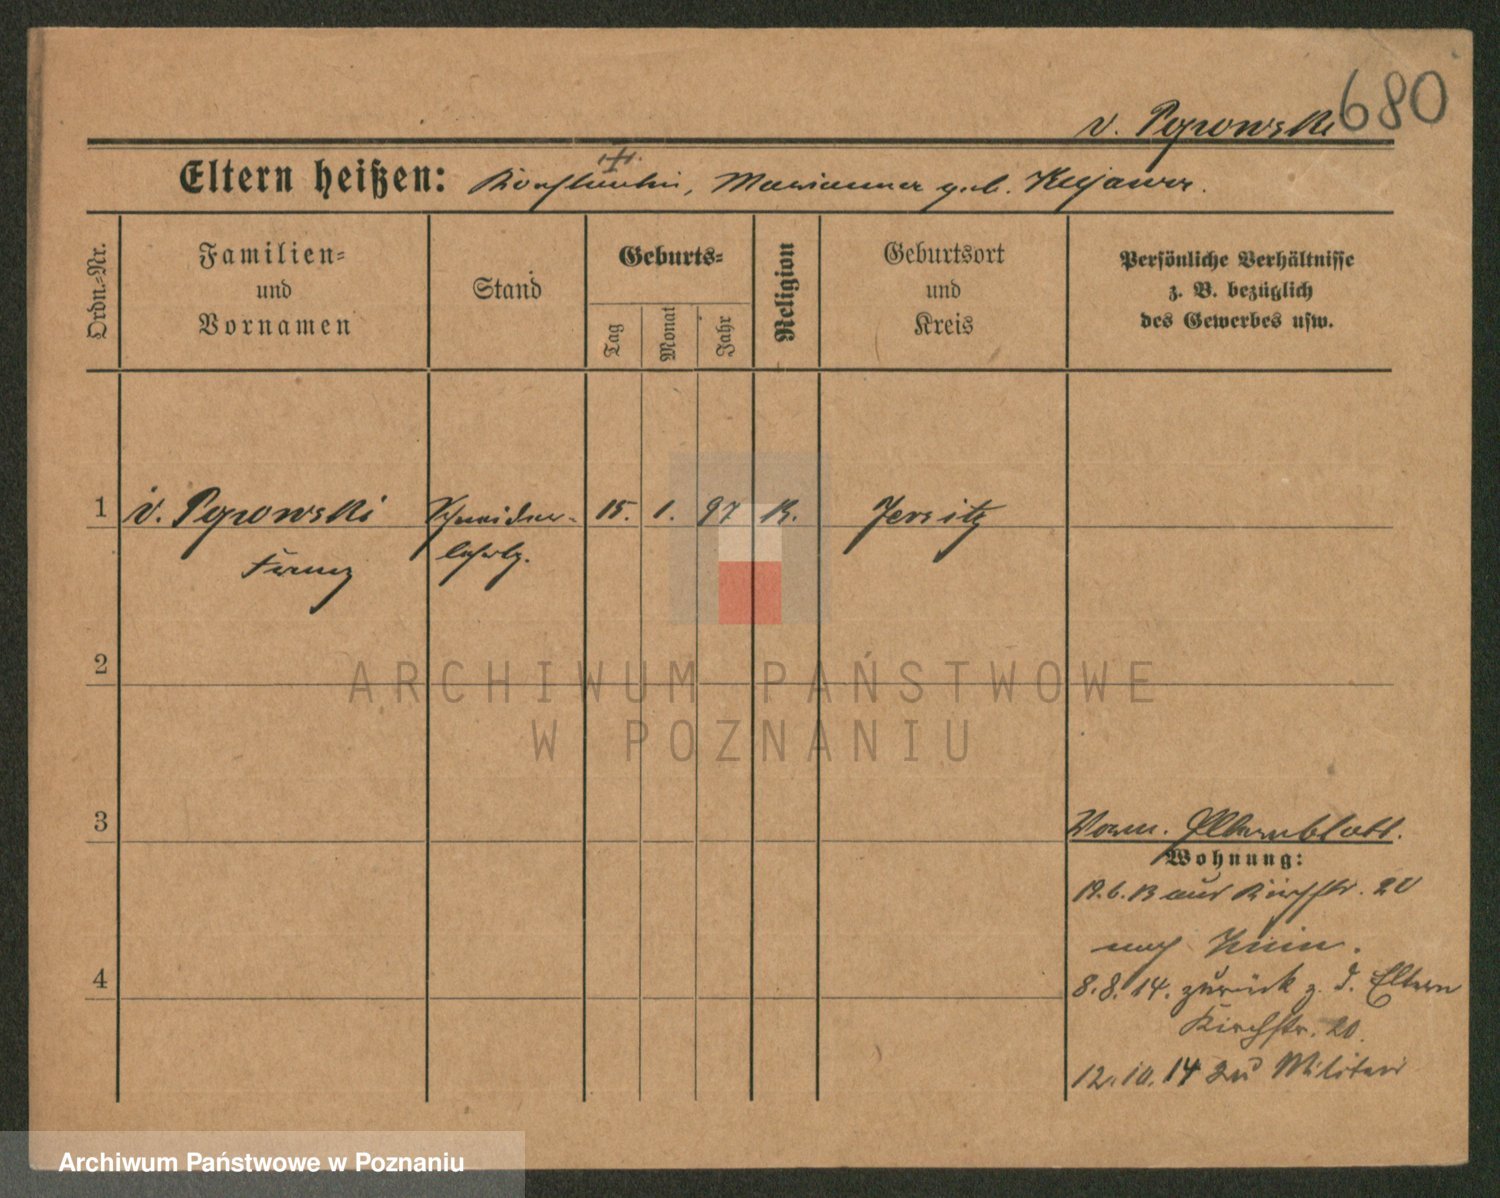 680
v. Pgrowski
Eltern heißen: Konstantin, Marianna geb. Kujawa.
Ordn.-Nr.
Familien-
und
Vornamen
Stand
Geburts-
Tag
Monat
Jahr
Religion
Geburtsort
und
Kreis
Persönliche Verhältnisse
z. B. bezüglich
des Gewerbes usw.
1 v. Pgrowski Schneider- 15. 1. 97 K. Jersitz
Franz lehrlg.
2
3
Vorm. Elternblatt.
Wohnung:
19.6.13 aus Kirchstr. 20
nach
4
8.8.14. zurück z. d. Eltern
Kirchstr. 20.
12.10.14 zu Militär
ARCHIWUM PAŃSTWOWE
W POZNANIU
Archiwum Państwowe w Poznaniu